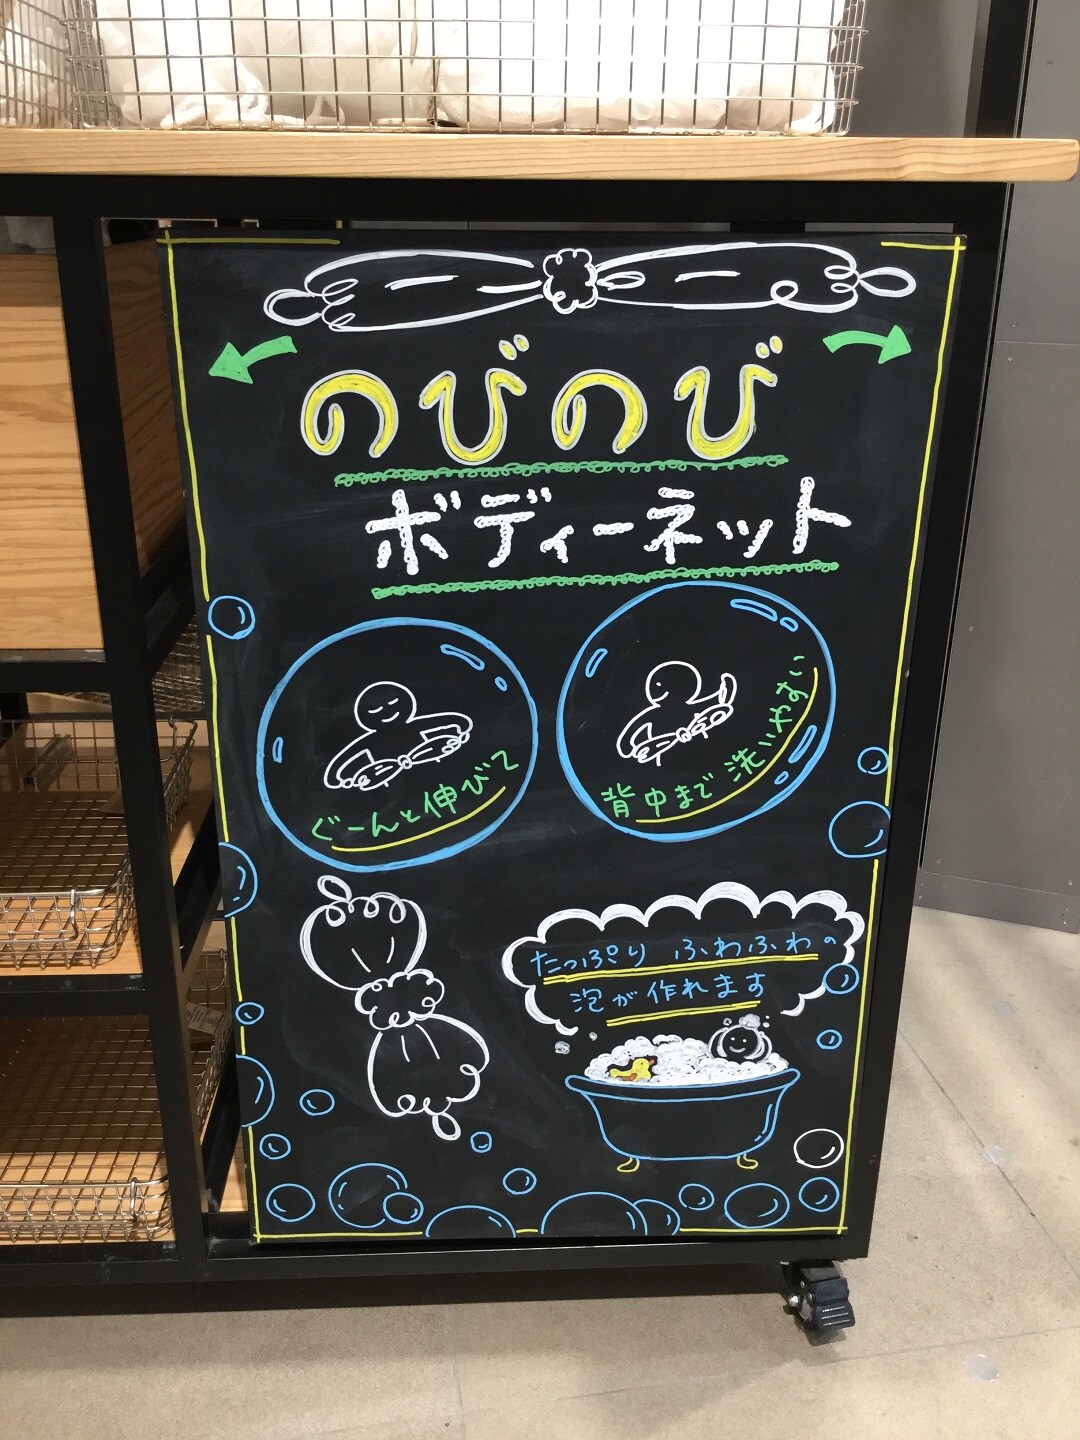 のびのび
ボディーネット
ぐーんと伸びて
背中まで洗いやすい
たっぷり ふわふわの
泡が作れます